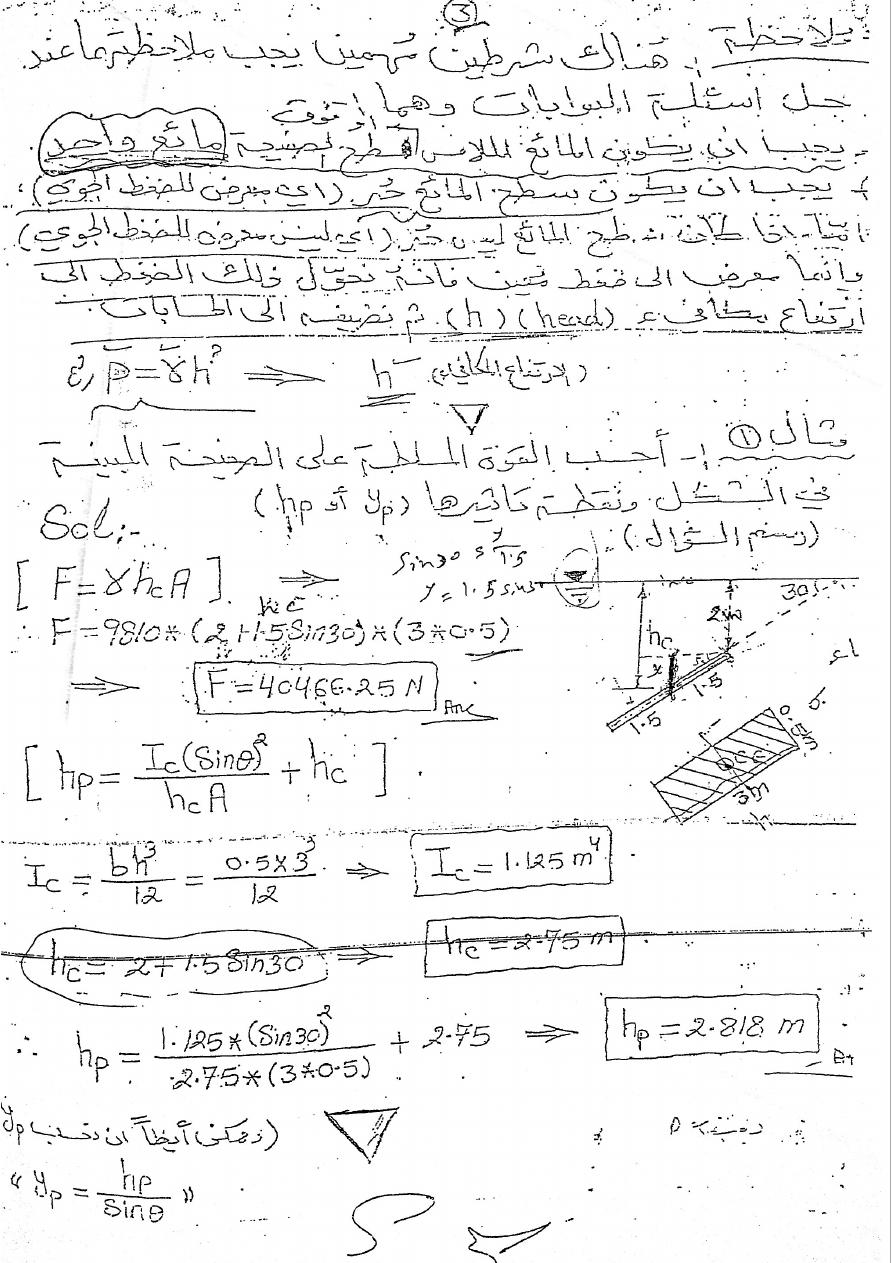 3
ملاحظة :- هناك شرطين مهمين يجب ملاحظتها عند
حل اسئلة البوابات وهما
او فوق
- يجب ان يكون المائع الملامس لسطح الصفيحة مائع واحد.
يجب ان يكون سطح المائع حُر (اي معرض للضغط الجوي)
اما اذا كان سطح المائع ليس حُر (اي ليس معرض للضغط الجوي)
وانما معرض الى ضغط معين فانه نحوّل ذلك الضغط الى
ارتفاع مكافىء (head) (h) ثم نضيفه الى الحسابات.
P = γh ⟹ h (الارتفاع المكافىء)
مثال ① :- أحسب القوة المسلطة على الصفيحة المبينة
في الشكل ونقطة تاثيرها (yp أو hp)
(رسم السؤال)
Sol:-
[F = γ hc A] ⟹
sin30 = y/1.5
y = 1.5 sin30
hc
∴ F = 9810*(2+1.5Sin30)*(3*0.5)
⟹ F = 40466.25 N Ans
30
2m
hc
y
1.5
1.5
0.5m
C
3m
[hp = Ic(Sinθ)²/hcA + hc]
Ic = bh³/12 = 0.5×3³/12 ⟹ Ic = 1.125 m⁴
hc = 2+1.5Sin30 ⟹ hc = 2.75 m
∴ hp = 1.125*(Sin30)²/2.75*(3*0.5) + 2.75 ⟹ hp = 2.818 m
(ويمكن أيضاً ان نحسب yp
" yp = hp/Sinθ "